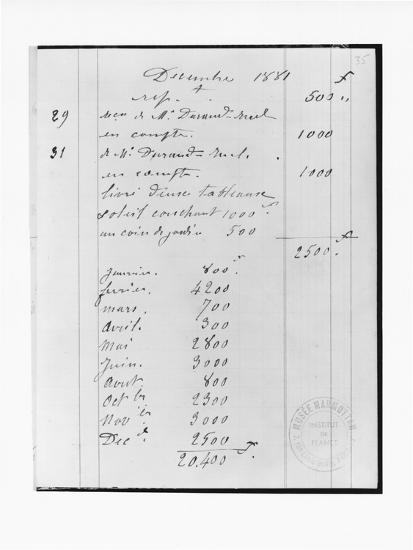 35
Decembre 1881 f
rept. 500 "
29 reçu de Mr Durand-Ruel
en compte. 1000
31 de Mr Durand-Ruel.
en compte. 1000
livré deux tableaux
soleil couchant 1000 f
un coin de jardin 500
2500. f
Janvier. 800. f
fevrier. 4200
mars. 700
Avril. 300
Mai 2800
Juin. 3000
Aout 800
Octbre 2300
Novbre 3000
Decd. 2500
20.400 f.
MUSÉE MARMOTTAN
INSTITUT
DE
FRANCE